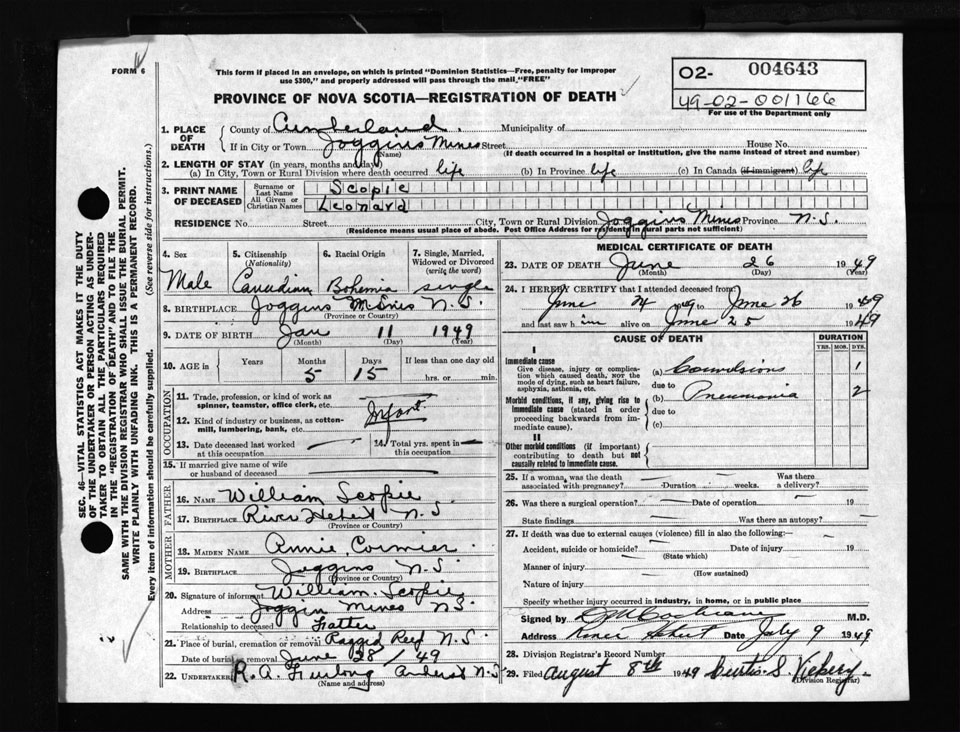 FORM 6
This form if placed in an envelope, on which is printed "Dominion Statistics—Free, penalty for improper
use $300," and properly addressed will pass through the mail "FREE"
PROVINCE OF NOVA SCOTIA—REGISTRATION OF DEATH
02- 004643
49-02-001166
For use of the Department only
1. PLACE OF DEATH
County of Cumberland. Municipality of
If in City or Town Joggins Mines Street House No.
(Name) (If death occurred in a hospital or institution, give the name instead of street and number)
2. LENGTH OF STAY (in years, months and days)
(a) In City, Town or Rural Division where death occurred life (b) In Province life (c) In Canada (if immigrant) life
3. PRINT NAME OF DECEASED
Surname or Last Name Scopie
All Given or Christian Names Leonard
RESIDENCE No. Street City, Town or Rural Division Joggins Mines Province N.S.
(Residence means usual place of abode. Post Office Address for residents in rural parts not sufficient)
4. Sex 5. Citizenship (Nationality) 6. Racial Origin 7. Single, Married, Widowed or Divorced (write the word)
Male Canadian Bohemia single
8. BIRTHPLACE Joggins Mines N.S.
(Province or Country)
9. DATE OF BIRTH Jan 11 1949
(Month) (Day) (Year)
10. AGE in Years Months Days If less than one day old
5 15 hrs. or min.
OCCUPATION
11. Trade, profession or kind of work as spinner, teamster, office clerk, etc.
12. Kind of industry or business, as cotton-mill, lumbering, bank, etc. Infant
13. Date deceased last worked at this occupation 14. Total yrs. spent in this occupation
15. If married give name of wife or husband of deceased
FATHER
16. NAME William Scopie
17. BIRTHPLACE River Hebert N.S
(Province or Country)
MOTHER
18. MAIDEN NAME Annie Cormier
19. BIRTHPLACE Joggins N.S
(Province or Country)
20. Signature of informant William Scopie
Address Joggin Mines N.S
Relationship to deceased Father
21. Place of burial, cremation or removal Raggid Reef N.S
Date of burial or removal June 28/49
22. UNDERTAKER R.A. Furlong Amherst N.S
(Name and address)
MEDICAL CERTIFICATE OF DEATH
23. DATE OF DEATH June 26 1949
(Month) (Day) (Year)
24. I HEREBY CERTIFY that I attended deceased from
June 24 1949 June 26 1949
and last saw him alive on June 25 1949
CAUSE OF DEATH DURATION
YRS. MOS. DYS.
I
Immediate cause
Give disease, injury or complication which caused death, NOT the mode of dying, such as heart failure, asphyxia, asthenia, etc.
(a) Convulsions 1
due to
(b) Pneumonia 2
Morbid conditions, if any, giving rise to immediate cause (stated in order proceeding backwards from immediate cause).
due to
(c)
II
Other morbid conditions (if important) contributing to death but not causally related to immediate cause.
25. If a woman, was the death associated with pregnancy? Duration weeks. Was there a delivery?
26. Was there a surgical operation? Date of operation 19
State findings Was there an autopsy?
27. If death was due to external causes (violence) fill in also the following:
Accident, suicide or homicide? Date of injury 19
(State which)
Manner of injury
(How sustained)
Nature of injury
Specify whether injury occurred in industry, in home, or in public place
Signed by Cochrane M.D.
Address River Hebert Date July 9 1949
28. Division Registrar's Record Number
29. Filed August 8th 1949 Curtis S. Vickery
(Division Registrar)
SEC. 46—VITAL STATISTICS ACT MAKES IT THE DUTY
OF THE UNDERTAKER OR PERSON ACTING AS UNDER-
TAKER TO OBTAIN ALL THE PARTICULARS REQUIRED
IN THE "REGISTRATION OF DEATH" AND TO FILE THE
SAME WITH THE DIVISION REGISTRAR WHO SHALL ISSUE THE BURIAL PERMIT.
WRITE PLAINLY WITH UNFADING INK. THIS IS A PERMANENT RECORD.
Every item of information should be carefully supplied. (See reverse side for instructions.)